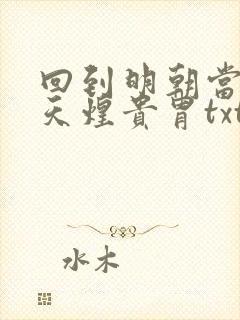 回到明朝当
天煌贵胄txt
水木